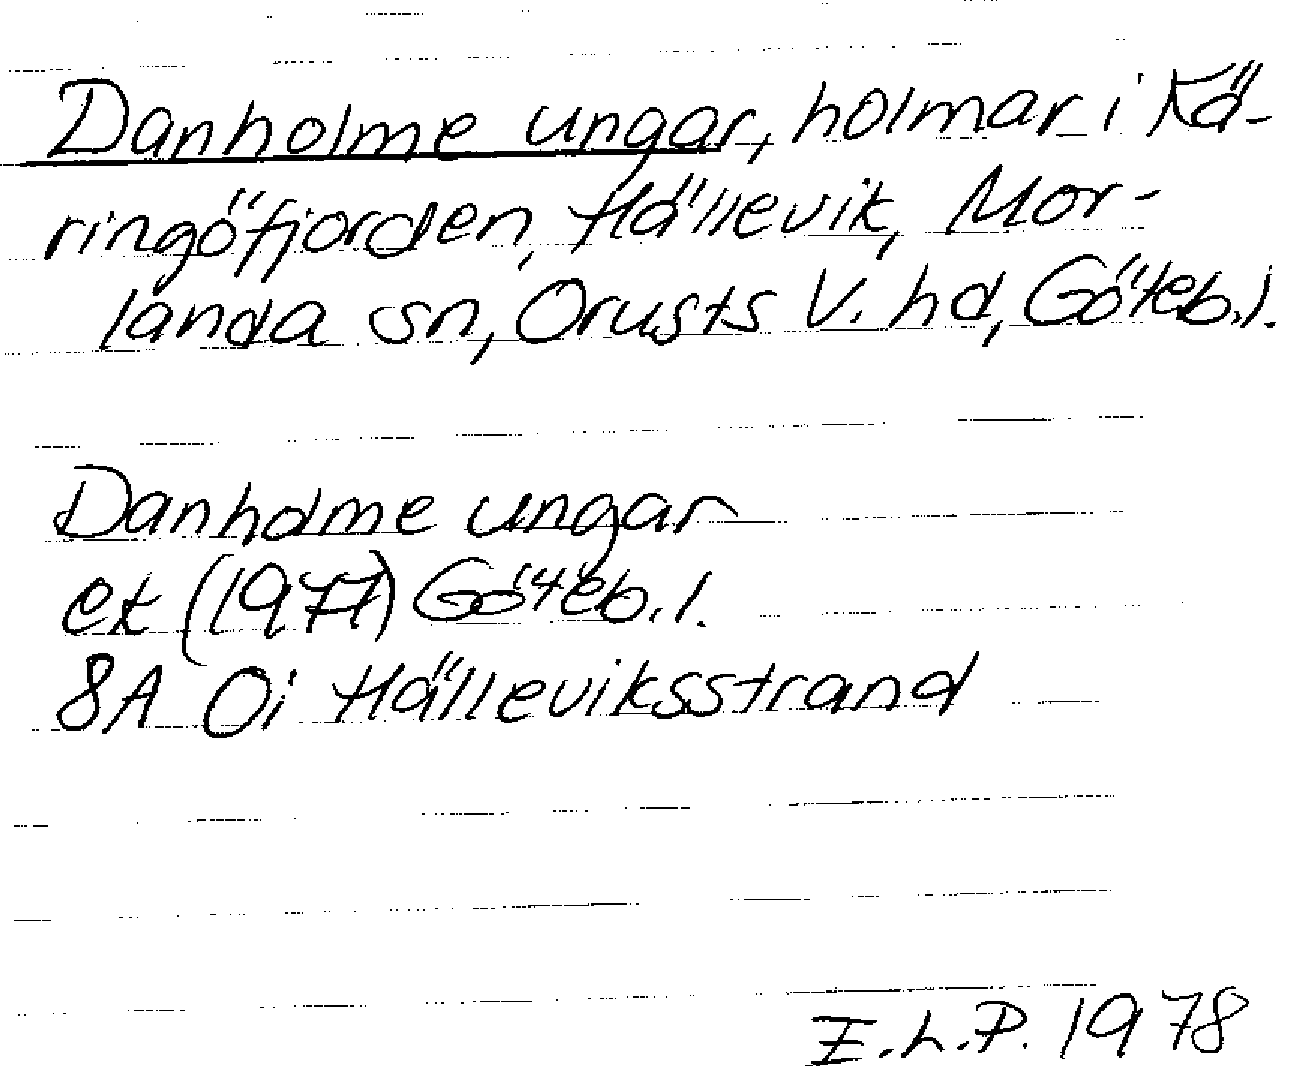 Danholme ungar, holmar i Kä-
ringöfjorden, Hällevik, Mor-
landa sn, Orusts V. hd, Göteb.l.
Danholme ungar
ek (1977) Göteb.l.
8A Oi Hälleviksstrand
E.L.P. 1978